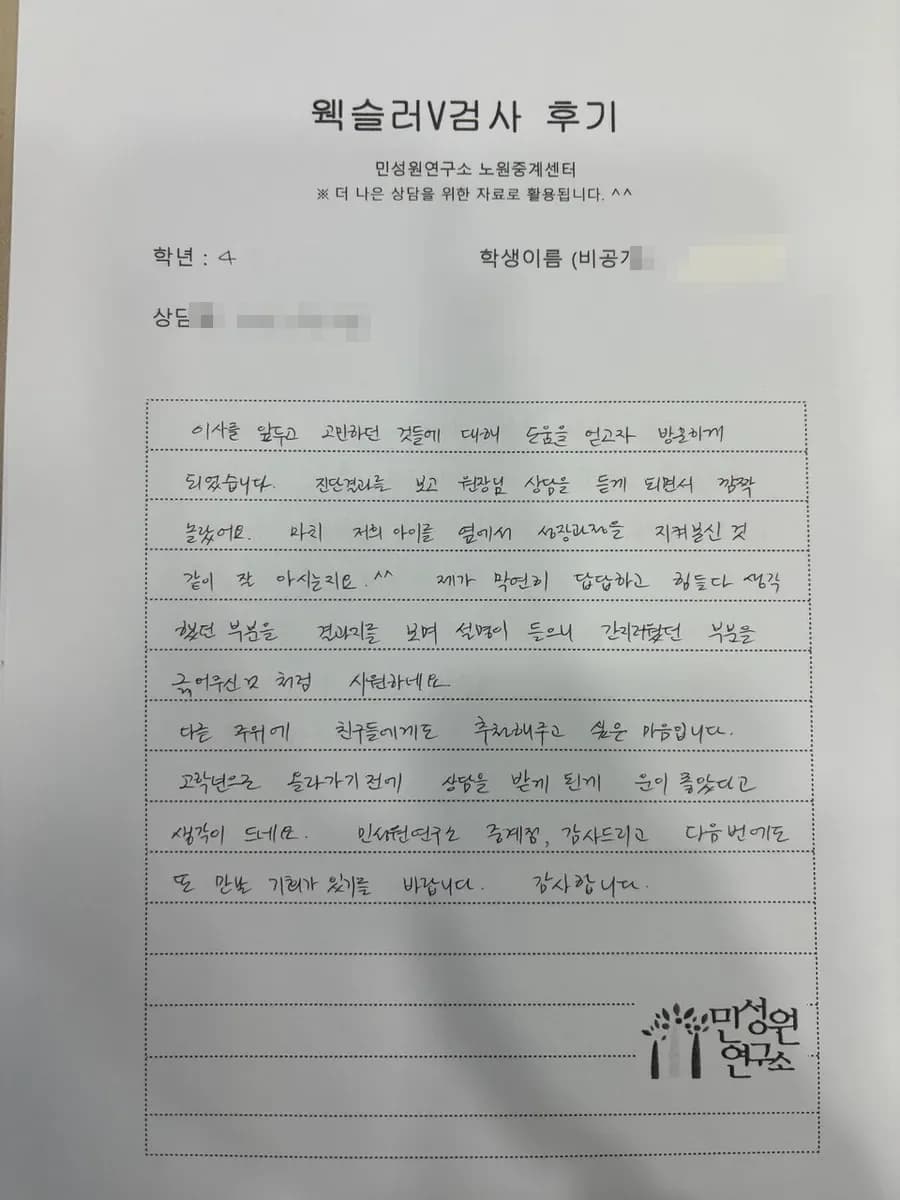 웩슬러V검사 후기
민성원연구소 노원중계센터
※ 더 나은 상담을 위한 자료로 활용됩니다. ^^
학년 : 4
학생이름 (비공개
상담
이사를 앞두고 고민하던 것들에 대해 도움을 얻고자 방문하게
되었습니다. 진단결과를 보고 원장님 상담을 듣게 되면서 깜짝
놀랐어요. 마치 저희 아이를 옆에서 성장과정을 지켜보신 것
같이 잘 아시는지요.^^ 제가 막연히 답답하고 힘들다 생각
했던 부분을 결과지를 보며 설명이 들으니 간지러웠던 부분을
긁어주신 것 처럼 시원하네요
다른 주위에 친구들에게도 추천해주고 싶은 마음입니다.
고학년으로 올라가기 전에 상담을 받게 된게 운이 좋았다고
생각이 드네요. 민성원연구소 중계점, 감사드리고 다음번에도
또 만날 기회가 있기를 바랍니다. 감사합니다.
민성원
연구소